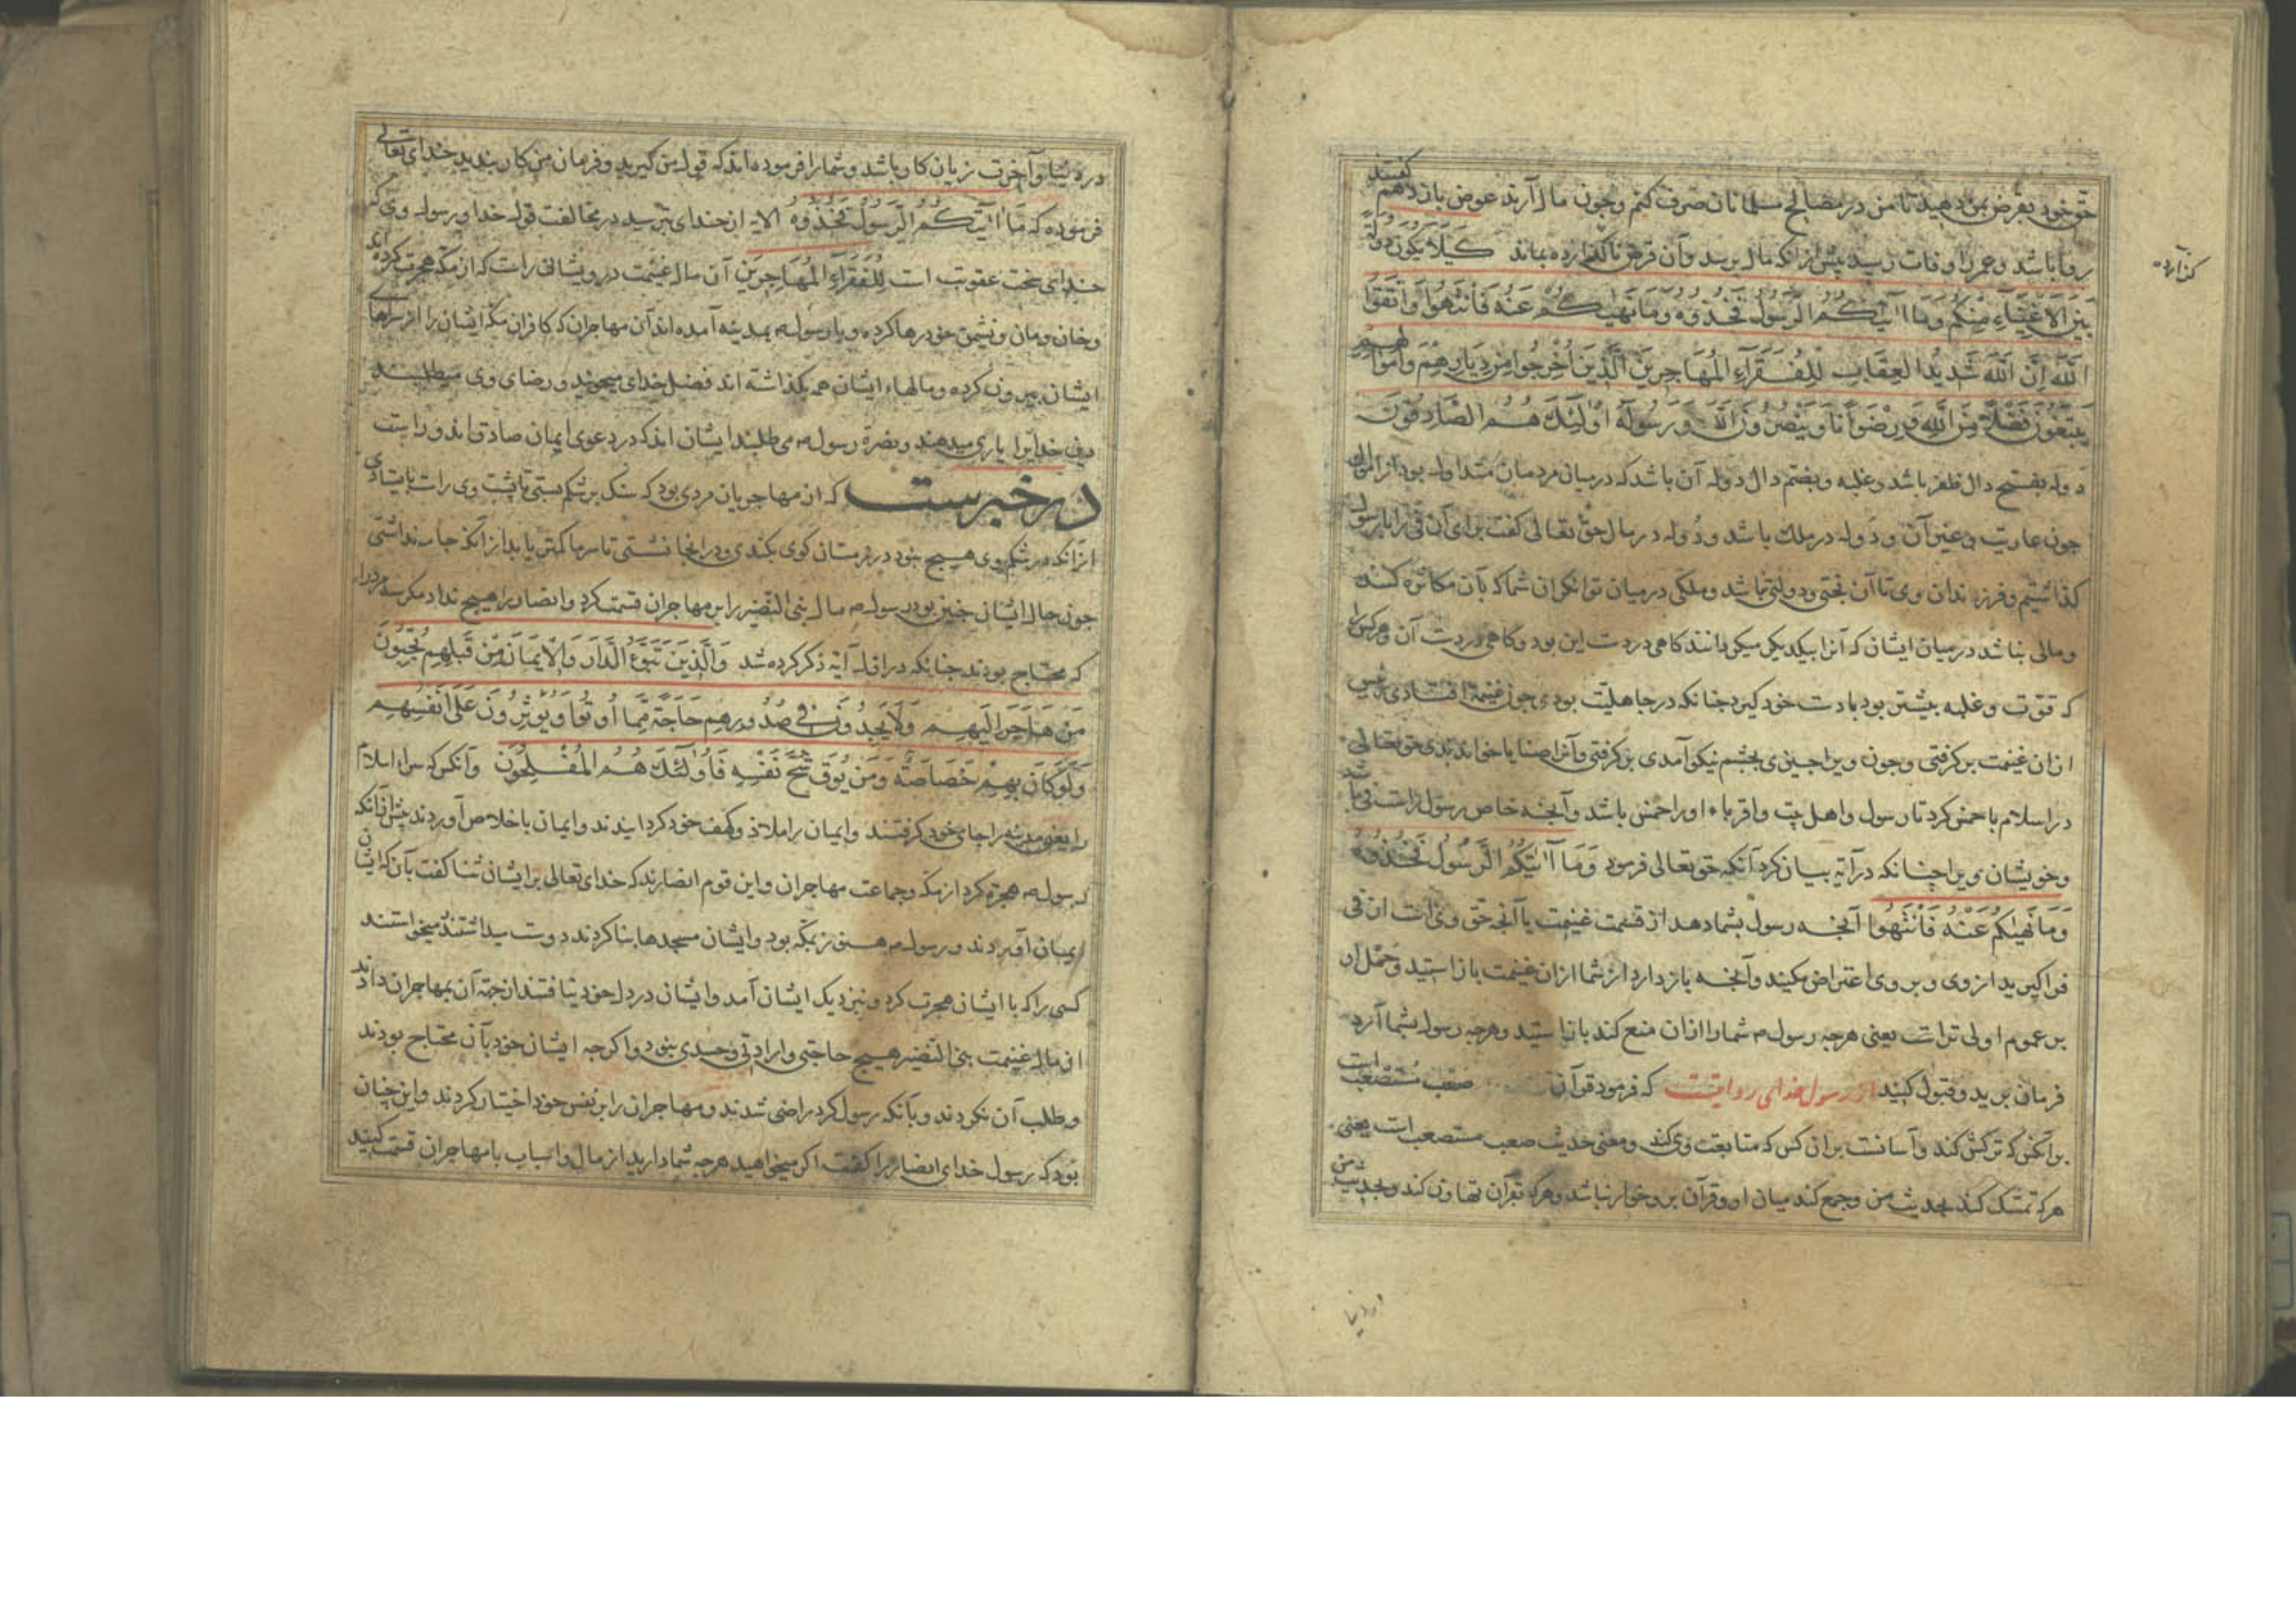 حق خود بقرض بمن دهید تا من در مصالح مسلمانان صرف کنم و چون مال آرند عوض باز دهم گفتند
روا باشد و عمر را وفات رسید پیش از آنکه مال برسد و آن قرض ناگذارده بماند كَيْلَا يَكُونَ دُولَةً
گذارده
بَيْنَ الْأَغْنِيَاءِ مِنْكُمْ وَمَا آتَيٰكُمُ الرَّسُولُ فَخُذُوهُ وَمَا نَهَيٰكُمْ عَنْهُ فَانْتَهُوا وَاتَّقُوا
اللَّهَ إِنَّ اللَّهَ شَدِيدُ الْعِقَابِ لِلْفُقَرَآءِ الْمُهَاجِرِينَ الَّذِينَ أُخْرِجُوا مِنْ دِيَارِهِمْ وَأَمْوَالِهِمْ
يَبْتَغُونَ فَضْلًا مِنَ اللَّهِ وَرِضْوَانًا وَيَنْصُرُونَ اللَّهَ وَرَسُولَهُ أُولَٰئِكَ هُمُ الصَّادِقُونَ
دوله بفتح دال ظفر باشد و غلبه و بضم دال دوله آن باشد که در میان مردمان متداوله بود از اموال
چون عاریت و غیر آن و دوله در ملک باشد و دوله در مال حق تعالی گفت برای آن فی را با رسول
گذاشتیم و فرزندان وی تا آن بختی و دولتی نباشد و ملکی در میان توانگران شما که بآن مکاثره کنند
و مالی نباشد در میان ایشان که آنرا بیکدیگر میگردانند گاهی در دست این بود و گاهی در دست آن و هر کس را
که قوت و غلبه بیشتر بود بادست خود گیرد چنانکه در جاهلیت بودی چون غنیمة افتادی رئیس
از آن غنیمت برگرفتی و چون ویرا چیزی بچشم نیکو آمدی برگرفتی و آنرا صفایا خواندندی حق تعالی
در اسلام با خمس کرد تا رسول و اهل بیت و اقرباء او را خمس باشد و آنچه خاص رسول راست وی باشد
و خویشان ویرا چنانکه در آیة بیان کرد آنکه حق تعالی فرمود وَمَا آتَيٰكُمُ الرَّسُولُ فَخُذُوهُ
وَمَا نَهَيٰكُمْ عَنْهُ فَانْتَهُوا آنچه رسول بشما دهد از قسمت غنیمت یا آنچه حق وی است از فی
فرا گیرید از وی و بر وی اعتراض مکنید و آنچه باز دارد از شما از آن غنیمت باز استید و حمل او
بر عموم اولی تر است یعنی هرچه رسول م شما را از آن منع کند باز استید و هرچه رسول بشما آرد
فرمان برید و قبول کنید از رسول خدای روایتست که فرمود قرآن صعب مستصعب است
بر آنکس که ترکش کند و آسانست بر آن کس که متابعت وی کند و معنی حدیث صعب مستصعب است یعنی
هر که تمسک کند بحدیث من و جمع کند میان او و قرآن بر وخوار نباشد و هر که بقرآن تهاون کند و بحدیث من
در دنیا
در دنیا و آخرت زیان کار باشد و شما را فرموده اند که قول من گیرید و فرمان من کار بندید خدای تعالی
فرموده که مَا آتَيٰكُمُ الرَّسُولُ فَخُذُوهُ الایه از خدای بترسید در مخالفت قول خدا و رسول وی که
خدای سخت عقوبت است لِلْفُقَرَاءِ الْمُهَاجِرِينَ آن مال غنیمت درویشانی راست که از مکه هجرت کرده اند
و خان و مان و نشیمن خود رها کرده و با رسول م بمدینه آمده اند آن مهاجران که کافران مکه ایشان را از سراهای
ایشان بیرون کرده و مالهاء ایشان همه بگذاشته اند فضل خدای میجویند و رضای وی میطلبند
دین خدایرا یاری میدهند و نصرة رسول م می طلبند ایشان اند که در دعوی ایمان صادق اند و راست
در خبرست که از مهاجریان مردی بود که سنگ بر شکم بستی تا پشت وی راست بایستادی
از آنکه در شکم وی هیچ نبود در زمستان گوی بکندی و در آنجا نشستی تا سرما کمتر یابد از آنکه جامه نداشتی
چون حال ایشان چنین بود رسول م مال بنی النضیر را بر مهاجران قسمت کرد و انصار را هیچ نداد مگر سه مرد را
که محتاج بودند چنانکه در اول آیة ذکر کرده شد وَالَّذِينَ تَبَوَّءُ الدَّارَ وَالْإِيمَانَ مِنْ قَبْلِهِمْ يُحِبُّونَ
مَنْ هَاجَرَ إِلَيْهِمْ وَلَا يَجِدُونَ فِي صُدُورِهِمْ حَاجَةً مِمَّا أُوتُوا وَيُؤْثِرُونَ عَلَىٰ أَنْفُسِهِمْ
وَلَوْ كَانَ بِهِمْ خَصَاصَةٌ وَمَنْ يُوقَ شُحَّ نَفْسِهِ فَأُولَٰئِكَ هُمُ الْمُفْلِحُونَ و آنکس که سراء اسلام
را یعنی مدینه را جای خود گرفتند و ایمان را ملاذ و کهف خود گردانیدند و ایمان باخلاص آوردند پیش از آنکه
رسول م هجرة کرد از مکه و جماعت مهاجران و این قوم انصارند که خدای تعالی بر ایشان ثنا گفت بآن که ایشان
ایمان آوردند و رسول م هنوز بمکه بود و ایشان مسجدها بنا کردند دوست میداشتند میخواستند
کسی را که با ایشان هجرت کرد و نزدیک ایشان آمد و ایشان در دل خود نیافتند از جهة آن بمهاجران دادند
از مال غنیمت بنی النضیر هیچ حاجتی و ارادتی و حسدی نبود و اگر چه ایشان خود بآن محتاج بودند
و طلب آن نکردند و بآنکه رسول کرد راضی شدند و مهاجران را بر نفس خود اختیار کردند و این چنان
بود که رسول خدای انصار را گفت اگر میخواهید هرچه شما دارید از مال و اسباب با مهاجران قسمت کنید